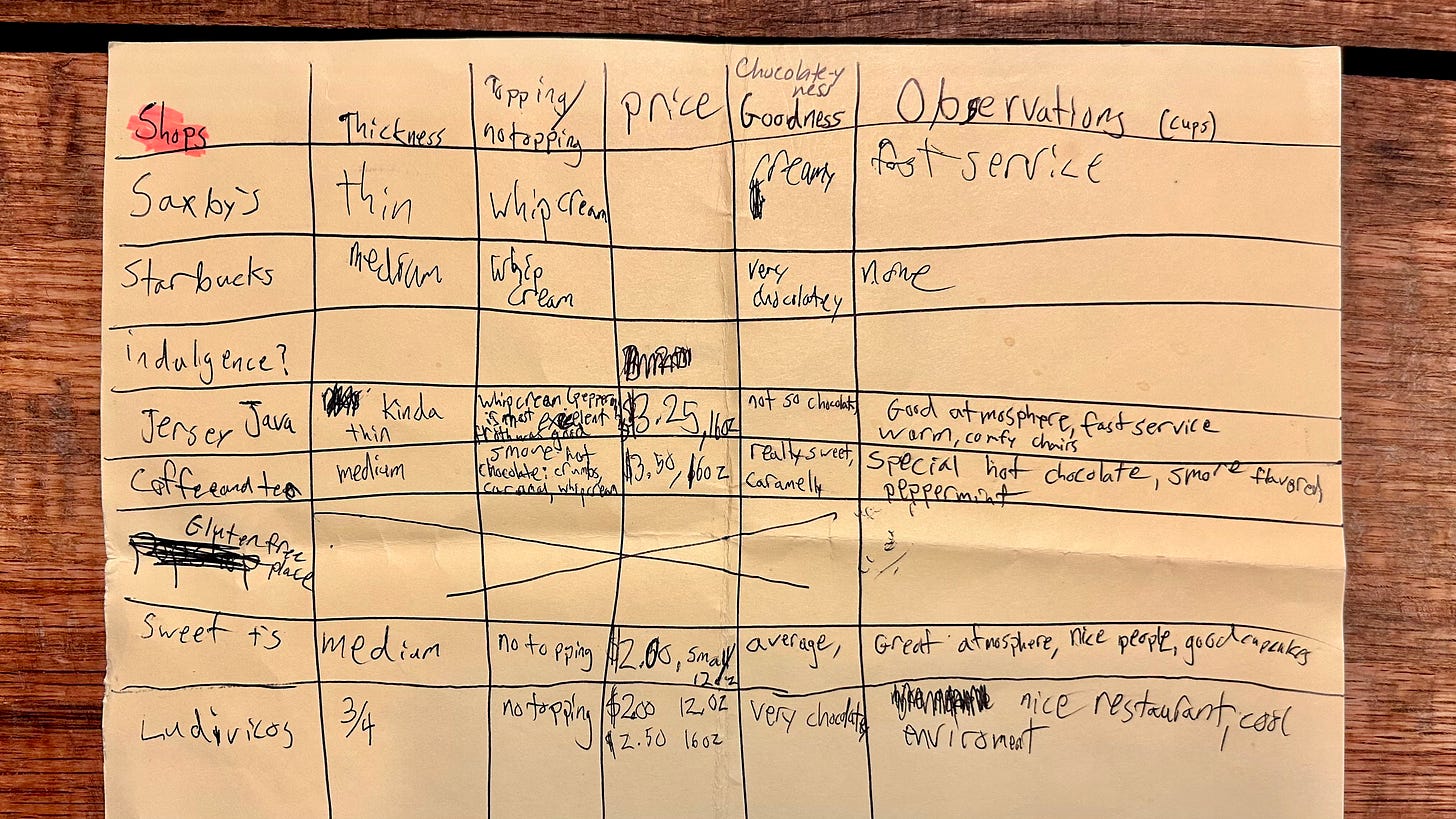 Chocolate-y
ness
Shops Thickness Topping/ no topping price Goodness Observations (cups)
Saxby's thin whip cream creamy fast service
Starbucks medium whip cream very chocolatey none
indulgence?
Jersey Java kinda thin whip cream (pepper is most exelent froth was good $3.25, 16oz not so chocolate Good atmosphere, fast service warm, comfy chairs
Coffee and tea medium smore hot chocolate: crumbs, caramel, whipcream $3.50, 16oz really sweet, caramelly special hot chocolate, smore flavored peppermint
Gluten free place
Sweet t's medium no topping $2.00, small 12oz average, Great atmosphere, nice people, good cupcakes
Ludivicos 3/4 no topping $2.00 12.oz $2.50 16oz very chocolate nice restaurant, cool enviroment